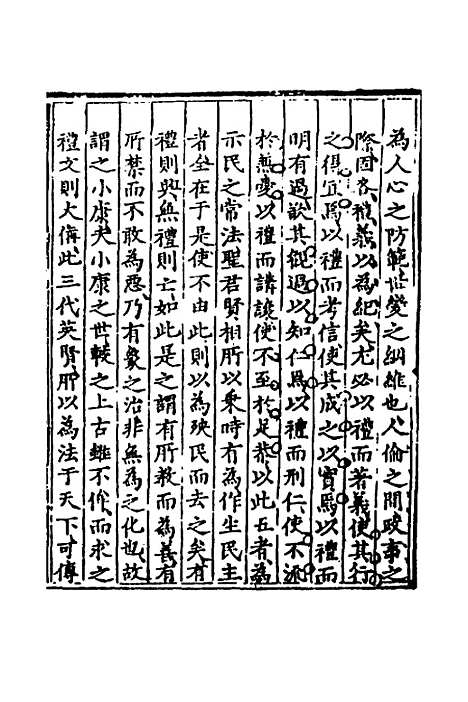 為人心之防範世變之綱維也人倫之間政事之
際固吝禮義以為紀矣尤必以禮而著義使其行
之得宜焉以禮而考信使其成之以實焉以禮而
明有過欲其從過以知仁焉以禮而刑仁使不流
於兼愛以禮而講讓使不至於足恭以此五者為
示民之常法聖君賢相所以乘時有為作坐民主
者坐在于是使不由此則以為殃民而去之矣有
禮則興無禮則亡如此是之謂有所敎而為善有
所禁而不敢為惡乃有象之治非無為之化也故
謂之小康夫小康之世較之上古雖不侔而求之
禮文則大備此三代英賢所以為法于天下可傳